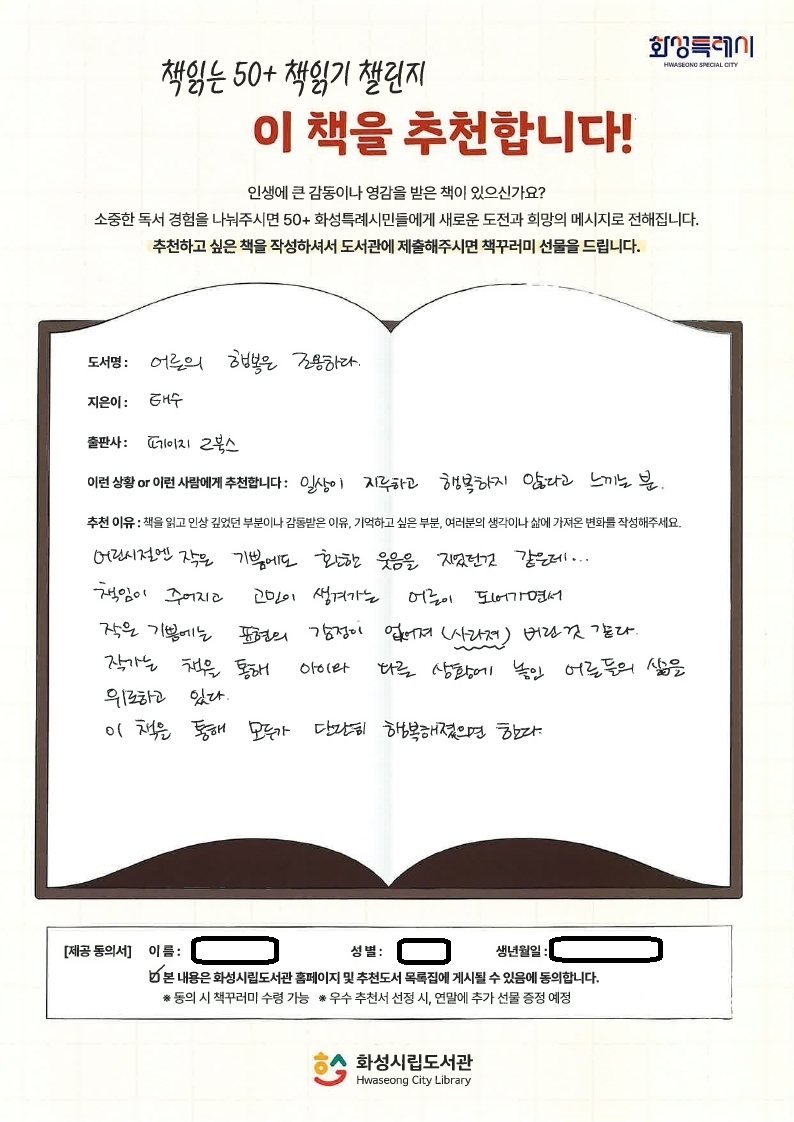 화성특례시
HWASEONG SPECIAL CITY
책읽는 50+ 책읽기 챌린지
이 책을 추천합니다!
인생에 큰 감동이나 영감을 받은 책이 있으신가요?
소중한 독서 경험을 나눠주시면 50+ 화성특례시민들에게 새로운 도전과 희망의 메시지로 전해집니다.
추천하고 싶은 책을 작성하셔서 도서관에 제출해주시면 책꾸러미 선물을 드립니다.
도서명 : 어른의 행복은 조용하다.
지은이 : 태수
출판사 : 페이지 2북스
이런 상황 or 이런 사람에게 추천합니다 : 일상이 지루하고 행복하지 않다고 느끼는 분.
추천 이유 : 책을 읽고 인상 깊었던 부분이나 감동받은 이유, 기억하고 싶은 부분, 여러분의 생각이나 삶에 가져온 변화를 작성해주세요.
어린시절엔 작은 기쁨에도 환한 웃음을 지었던것 같은데...
책임이 주어지고 고민이 생겨가는 어른이 되어가면서
작은 기쁨에는 표현의 감정이 없어져 (사라져) 버린것 같다.
작가는 책을 통해 아이와 다른 상황에 놓인 어른들의 삶을
위로하고 있다.
이 책을 통해 모두가 단단히 행복해졌으면 한다.
[제공 동의서] 이 름 : 성 별 : 생년월일 :
☑ 본 내용은 화성시립도서관 홈페이지 및 추천도서 목록집에 게시될 수 있음에 동의합니다.
※ 동의 시 책꾸러미 수령 가능 ※ 우수 추천서 선정 시, 연말에 추가 선물 증정 예정
화성시립도서관
Hwaseong City Library